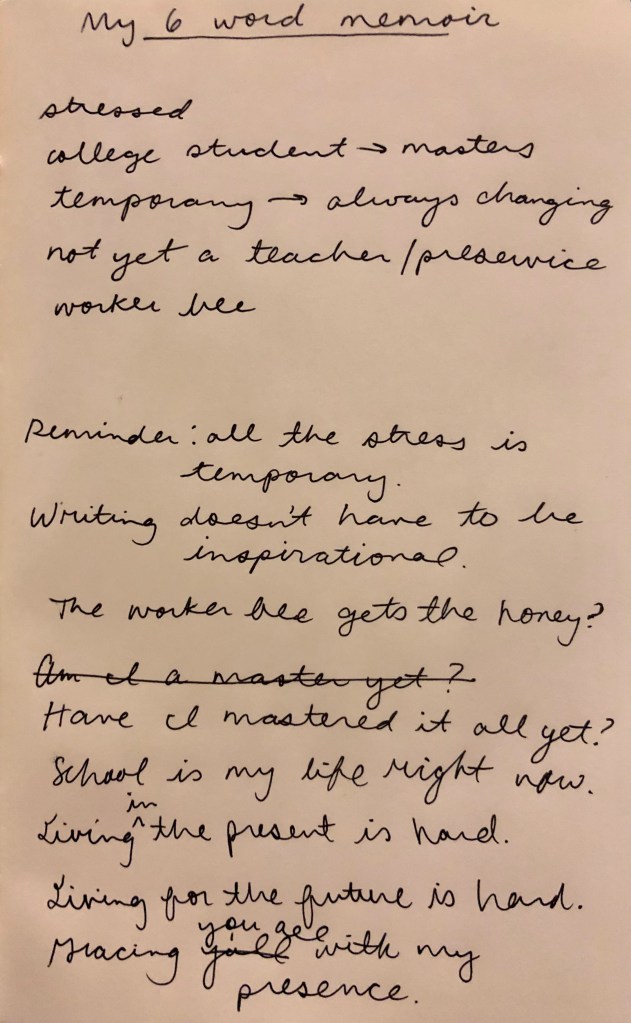 My 6 word memoir
stressed
college student → masters
temporary → always changing
not yet a teacher/preservice
worker bee
Reminder: all the stress is
temporary.
Writing doesn't have to be
inspirational.
The worker bee gets the honey?
Am I a master yet?
Have I mastered it all yet?
School is my life right now.
Living in the present is hard.
Living for the future is hard.
you all
Gracing y'all with my
presence.